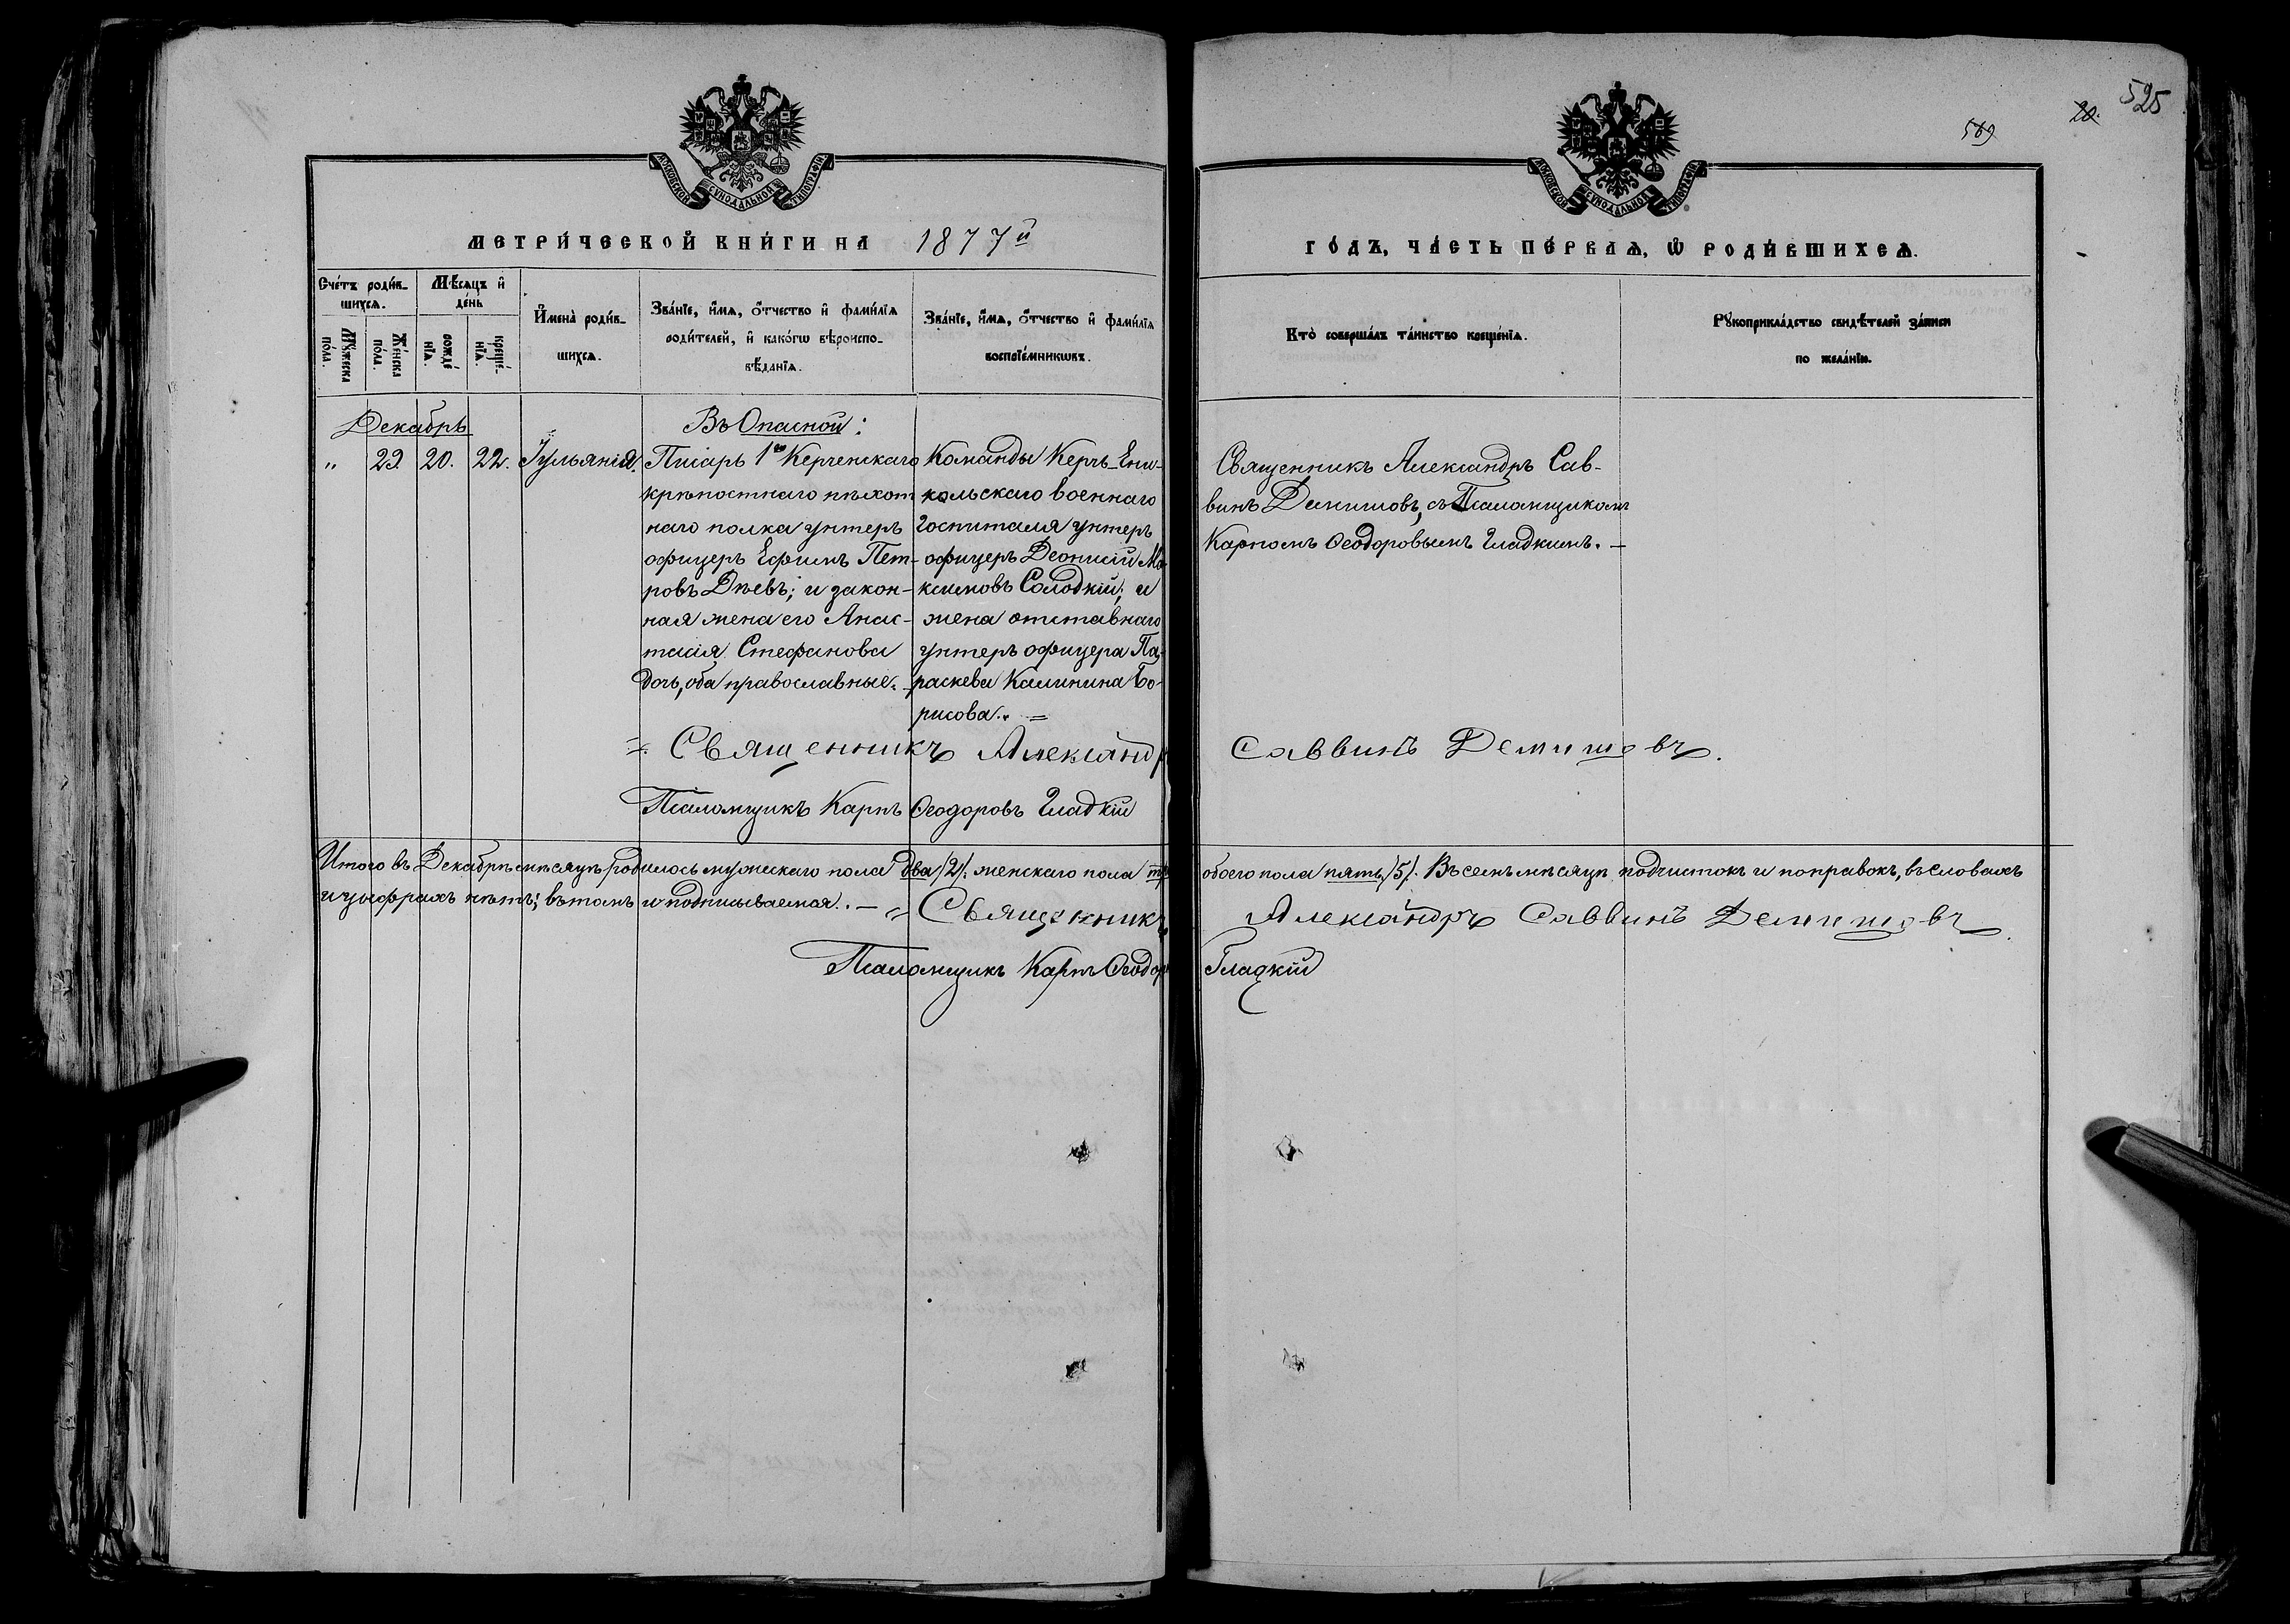 525
20.
569
МОСКОВСКОЙ СѴНОДАЛЬНОЙ ТИПОГРАФІИ
МОСКОВСКОЙ СѴНОДАЛЬНОЙ ТИПОГРАФІИ
МЕТРИ́ЧЕСКОЙ КНИ́ГИ НА 1877й
ГО́ДЪ, ЧА́СТЬ ПЕ́РВАѦ, Ѡ РОДИ́ВШИХСѦ.
Сче́тъ роди́в-
шихсѧ.
Мꙋ́жеска по́ла.
Же́нска по́ла.
Мѣ́сѧцъ и҆ де́нь
рожде́нїѧ.
креще́нїѧ.
И҆мена̀ роди́в-
шихсѧ.
Зва́нїе, и҆́мѧ, ѻ҆́тчество и҆ фами́лїѧ
роди́телей, и҆ како́гѡ вѣроиспо-
вѣ́данїѧ.
Зва́нїе, и҆́мѧ, ѻ҆́тчество и҆ фами́лїѧ
воспрїе́мникѡвъ.
Кто̀ соверша́лъ та́инство креще́нїѧ.
Рꙋкоприкла́дство свидѣ́телей за́писи
по жела́нїю.
Декабрь
„ 29. 20. 22. Іульянія.
Въ Опасной:
Писарь 1го Керченскаго
крѣпостнаго пѣхот
наго полка унтеръ
офицеръ Ефимъ Пет-
ровъ Днѣвъ; и закон-
ная жена его Анас-
тасія Стефанова
дочь, оба православные.
Команды Керчь-Ени-
кольскаго военнаго
Госпиталя унтеръ
офицеръ Деонисій Ма-
ксимовъ Солодкій; и
жена отставнаго
унтеръ офицера Па-
раскева Калинина Бо-
рисова. =
Священникъ Александръ Сав-
винъ Демишовъ, съ Псаломщикомъ
Карпомъ Ѳеодоровымъ Гладкимъ. —
Священникъ Александръ Саввинъ Демишовъ.
Псаломщикъ Карпъ Ѳеодоровъ Гладкій
Итого въ Декабрѣ мѣсяцѣ родилось мужескаго пола два /2/. женскаго пола три обоего пола пять /5/. Въ семъ мѣсяцѣ подчистокъ и поправокъ, въ словахъ
и цыфрахъ нѣтъ; въ томъ и подписываемся. — Священникъ Александръ Саввинъ Демишовъ.
Псаломщикъ Карпъ Ѳеодоръ Гладкій